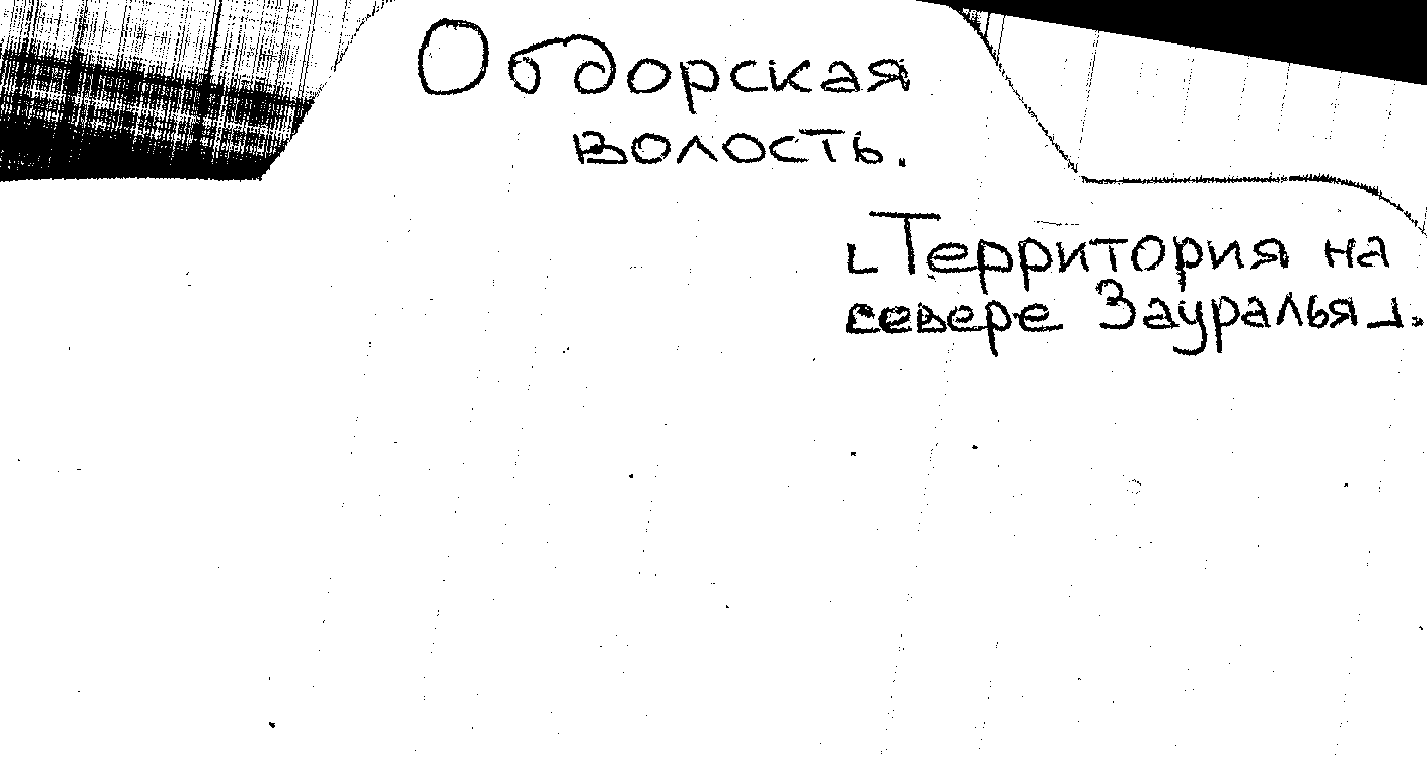 Обдорская
волость.
⌊Территория на
севере Зауралья⌋.